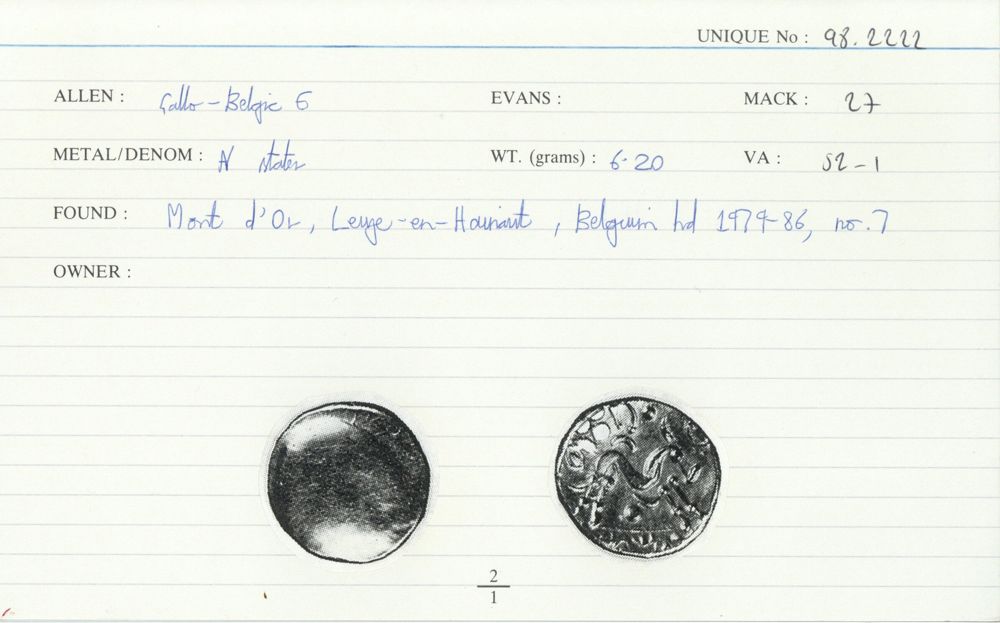 UNIQUE No : 98.2222
ALLEN : Gallo-Belgic E EVANS : MACK : 27
METAL/DENOM : N stater WT. (grams) : 6.20 VA : 52-1
FOUND : Mont d'Or, Leuze-en-Hainaut, Belguim hd 1979-86, no.7
OWNER :
2
1